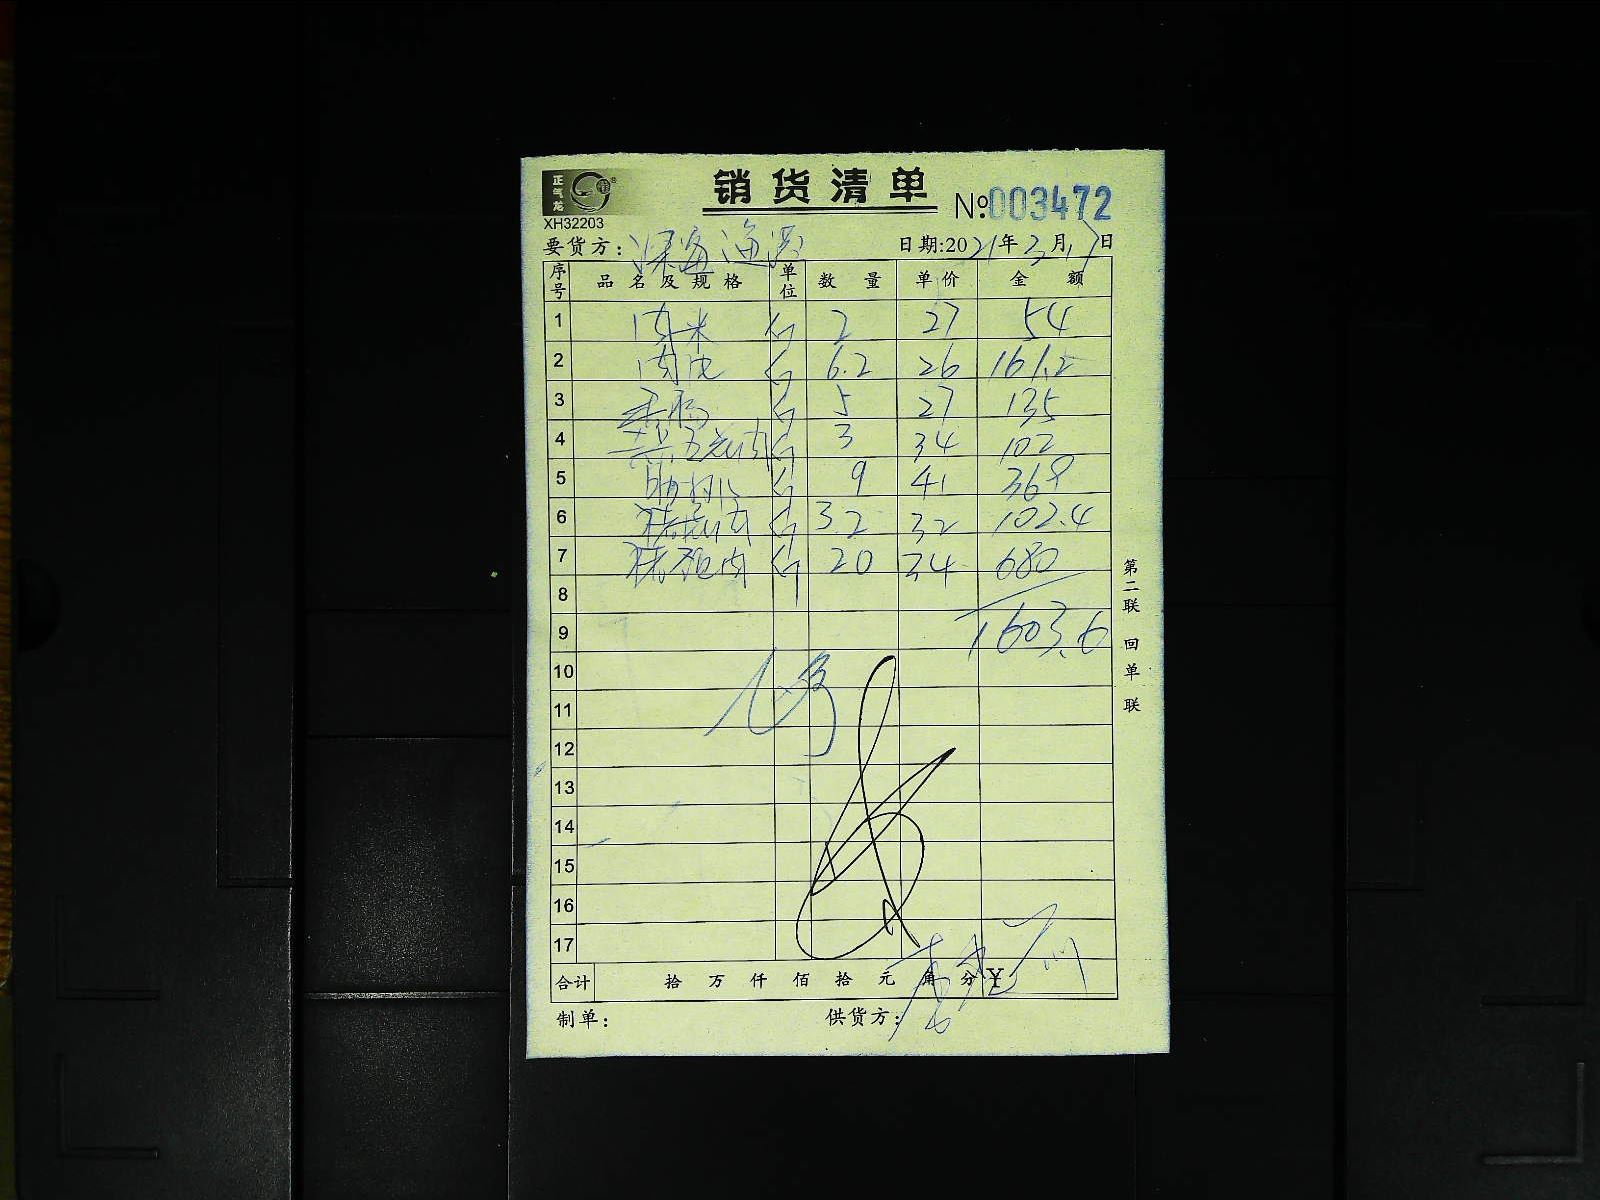 正气龙
销货清单
XH32203
№:003472
要货方:深海渔港 日期:2021年3月17日
序号 品名及规格 单位 数量 单价 金额
1 肉米 斤 2 27 54
2 肉皮 斤 6.2 26 161.2
3 香肠 斤 5 27 135
4 五花肉 斤 3 34 102
5 肋排 斤 9 41 369
6 斤 3.2 32 102.4
7 斤 20 34 680
8
9 1603.6
10
11
12
13
14
15
16
17
合计 拾 万 仟 佰 拾 元 角 分 ¥
制单: 供货方:
第二联 回单联